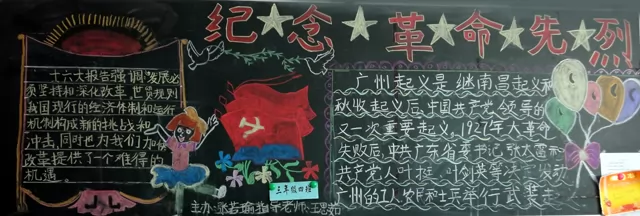 纪念★革命先烈
十六大报告强调发展必
须坚持和深化改革,世贸规则
我国现行的经济体制和运行
机制构成新的挑战和
冲击,同时也为我们加快
改革提供了一个难得的
机遇。
广州起义是继南昌起义和
秋收起义后,中国共产党领导的
又一次重要起义。1927年大革命
失败后,中共广东省委书记张太雷和
共产党人叶挺、叶剑英等决定发动
广州的工人农民和士兵举行武装起
三年级四班
主办:张若瑜 指导老师:王思茹